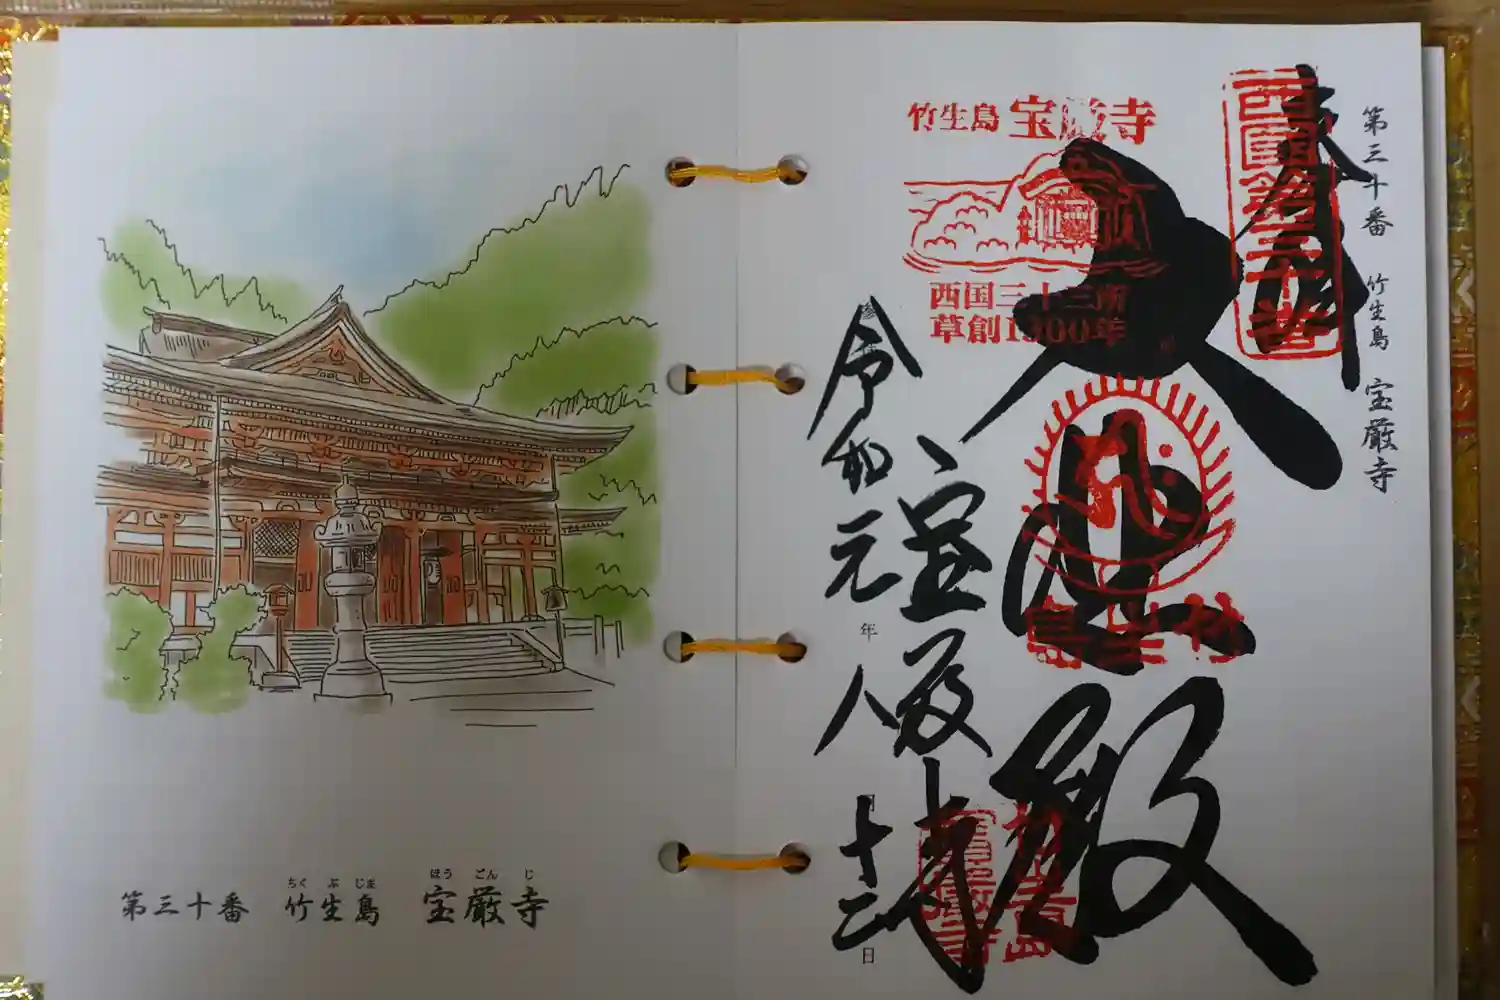 第三十番 竹生島 宝厳寺
ちく ぶ じま ほう ごん じ
第三十番 竹生島 宝厳寺
奉拝
西國第三十番
竹生島 宝厳寺
西国三十三所
草創1300年
大悲殿
竹生島
宝厳寺
令和元年八月十二日